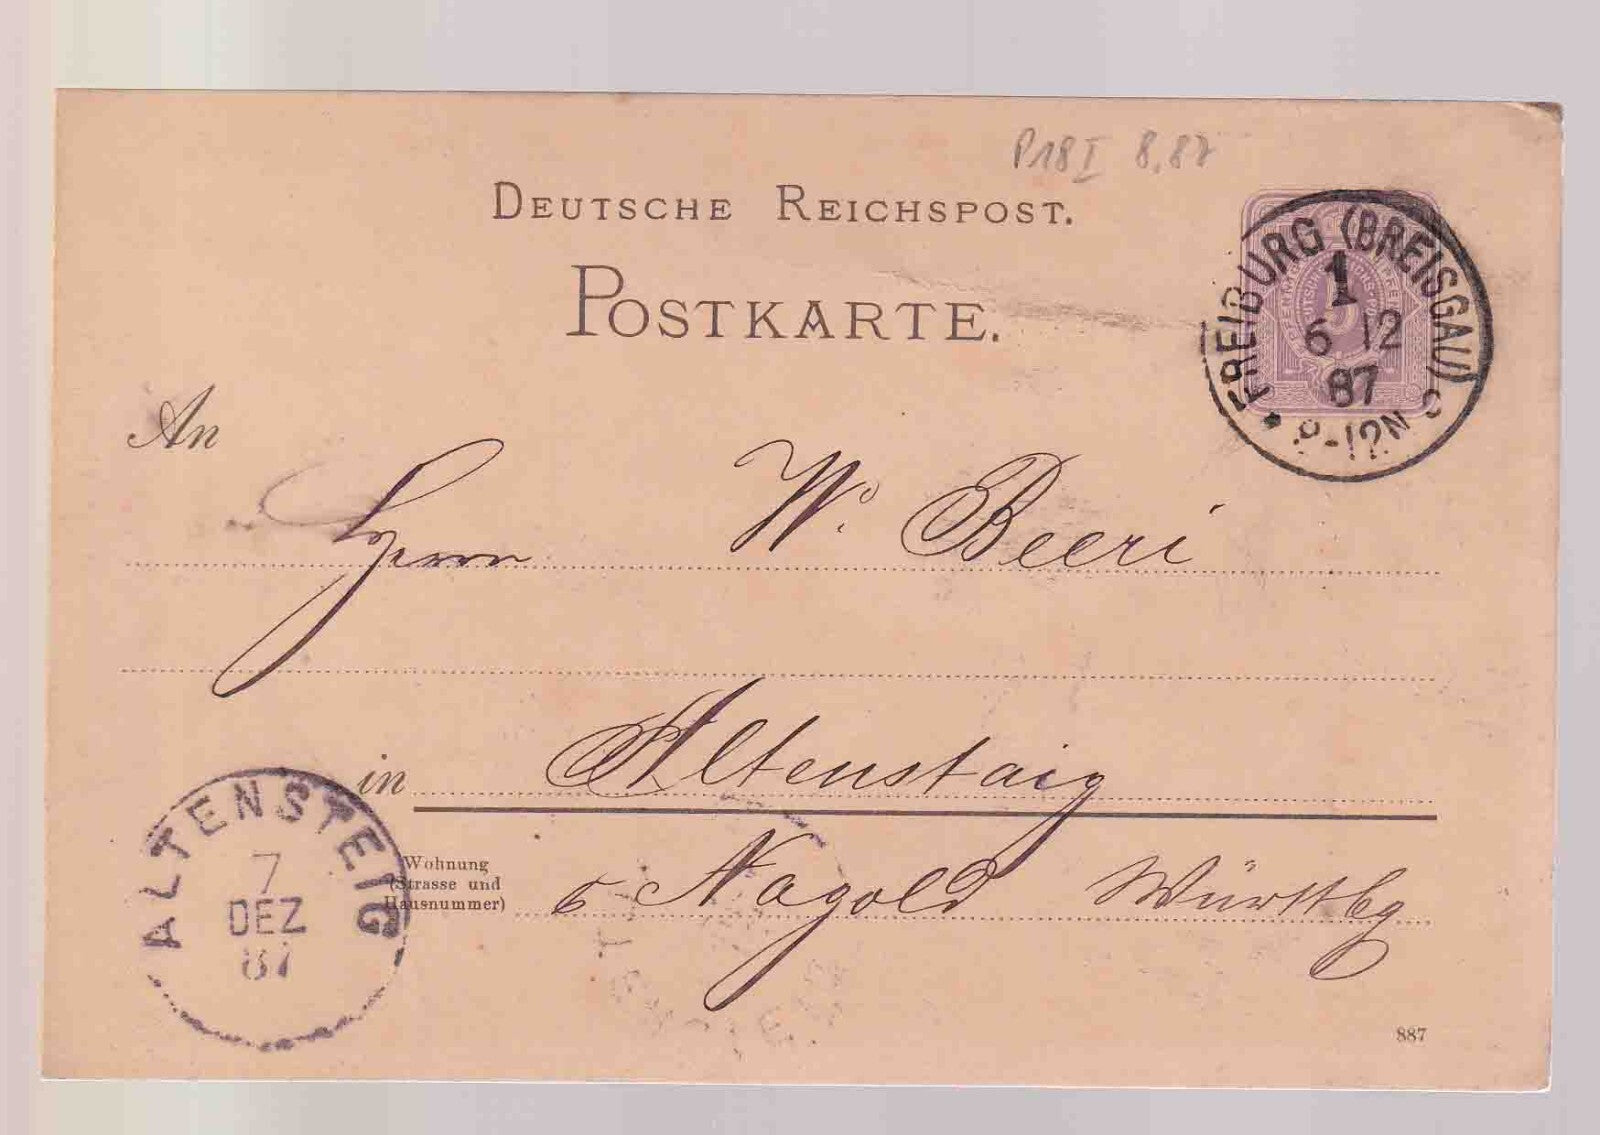 P18 I 8.87
DEUTSCHE REICHSPOST.
POSTKARTE.
FREIBURG (BREISGAU)
1
6 12
87
8-12N
An
Herrn W. Beeri
in Altenstaig
Wohnung
(Strasse und
Hausnummer)
Nagold Württbg
ALTENSTEIG
7
DEZ
87
887